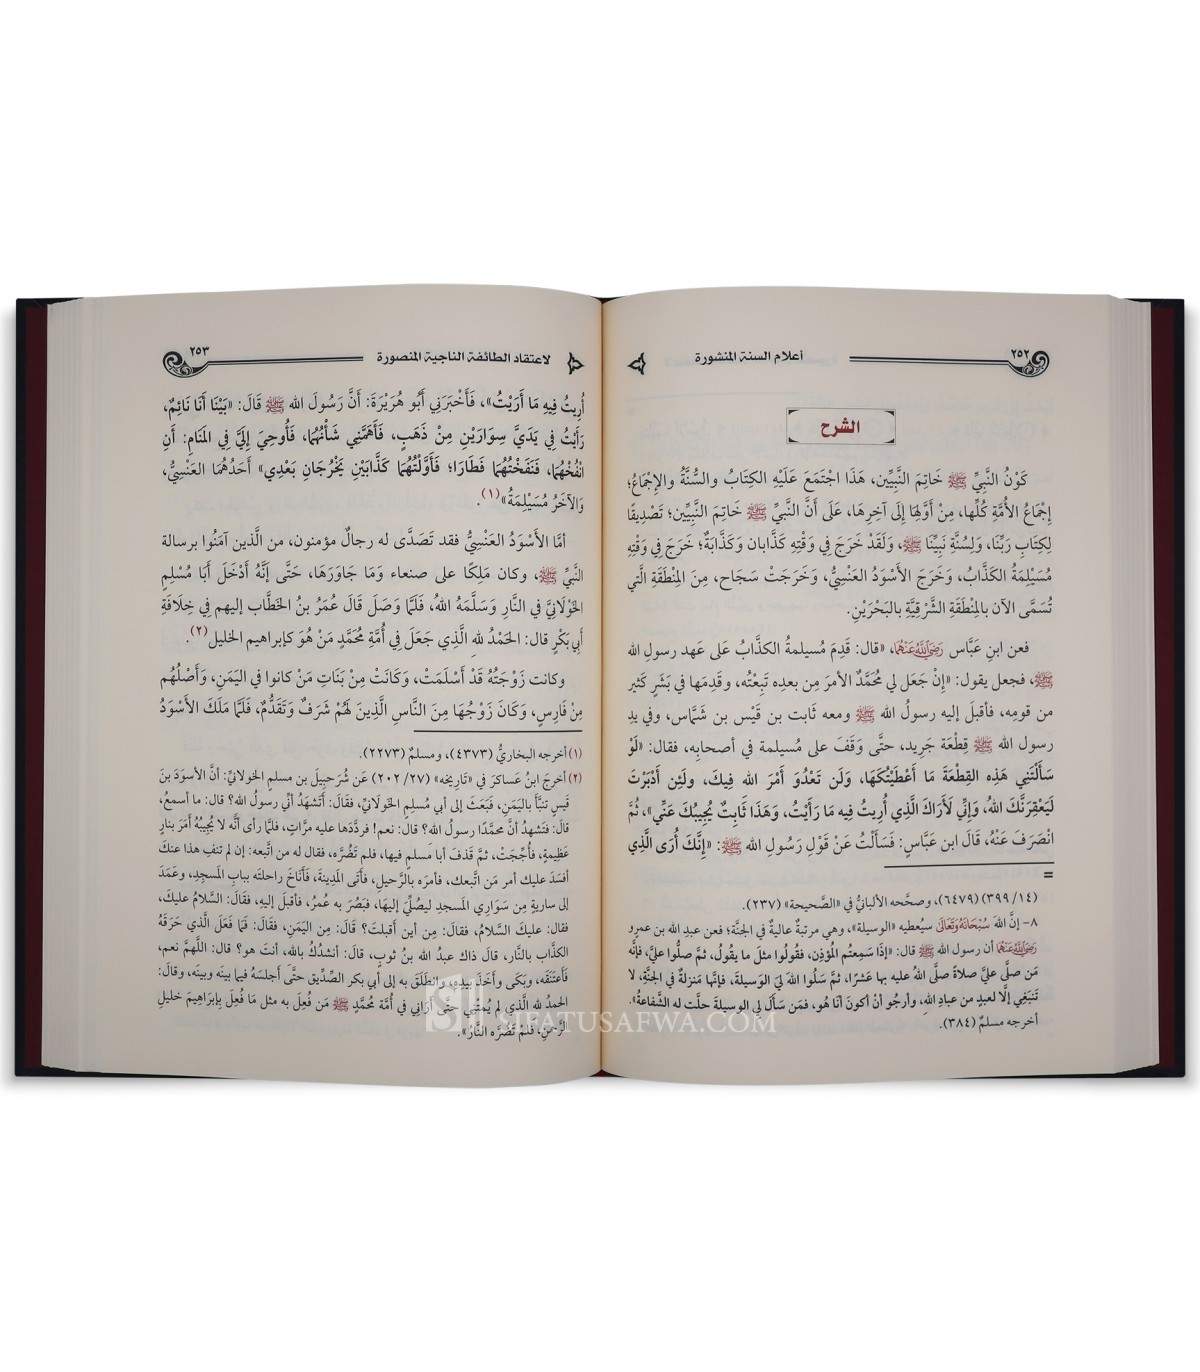 ٢٥٢
أعلام السنة المنشورة
الشرح
كَوْنُ النَّبِيِّ ﷺ خَاتِمَ النَّبِيِّين، هَذَا اجْتَمَعَ عَلَيْهِ الكِتَابُ والسُّنَّةُ والإِجْمَاعُ؛
إِجْمَاعُ الأُمَّةِ كُلِّها، مِنْ أَوَّلِهَا إِلَى آخِرِهَا، عَلَى أَنَّ النَّبِيَّ ﷺ خَاتِمَ النَّبِيِّين؛ تَصْدِيقًا
لِكِتَابِ رَبِّنَا، وَلِسُنَّةِ نَبِيِّنَا ﷺ، وَلَقَدْ خَرَجَ فِي وَقْتِهِ كَذَّابان وَكَذَّابةٌ؛ خَرَجَ فِي وَقْتِهِ
مُسَيْلِمَةُ الكَذَّابُ، وَخَرَجَ الأَسْوَدُ العَنْسِيُّ، وَخَرَجَتْ سَجَاح، مِنَ المِنْطَقَةِ الَّتِي
تُسَمَّى الآن بالمِنْطَقَةِ الشَّرْقِيَّةِ بالبَحْرَيْنِ.
فعن ابنِ عَبَّاس رَضِيَ اللَّهُ عَنْهُمَا، «قال: قَدِمَ مُسيلمةُ الكذَّابُ عَلى عَهد رسولِ الله
ﷺ، فجعل يقول: «إنْ جَعَل لي مُحمَّدٌ الأمرَ مِن بعدِه تَبِعْتُه، وقَدِمَها في بَشَرٍ كَثير
من قومِه، فأقبلَ إليه رسولُ الله ﷺ ومعه ثَابت بن قَيْس بن شَمَّاس، وفي يدِ
رسول الله ﷺ قِطْعَة جَرِيد، حتَّى وَقَفَ على مُسيلمة في أصحابِه، فقال: «لَوْ
سَأَلْتَنِي هَذِهِ القِطْعَةَ مَا أَعْطَيْتُكَهَا، وَلَن تَعْدُوَ أَمْرَ الله فِيكَ، ولَئِن أَدْبَرْتَ
لَيَعْقِرَنَّكَ اللهُ، وَإِنِّي لَأَرَاكَ الَّذِي أُرِيتُ فِيه مَا رَأَيْتُ، وَهَذَا ثَابِتٌ يُجِيبُكَ عَنِّي»، ثُمَّ
انْصَرَفَ عَنْهُ، قَالَ ابن عَبَّاسٍ: فَسَأَلْتُ عَنْ قَوْلِ رَسُولِ الله ﷺ: «إِنَّكَ أُرَى الَّذِي
=
(١٤/ ٣٩٩) (٦٤٧٩)، وصحَّحه الألبانيُّ في «الصَّحيحة» (٢٣٧).
٨- إنَّ اللهَ سُبْحَانَهُ وَتَعَالَى سيُعطيه «الوسيلة»، وهي مرتبةٌ عاليةٌ في الجنَّة؛ فعن عبدِ الله بن عمرو
رَضِيَ اللَّهُ عَنْهُمَا أن رسول الله ﷺ قال: «إذَا سَمِعتُم المُؤذِن، فقُولُوا مثلَ ما يقُول، ثمَّ صلُّوا عليَّ، فإنَّه
مَن صلَّى عليَّ صلاةً صلَّى اللهُ عليه بها عَشرًا، ثمَّ سَلُوا اللهَ لِيَ الوَسيلةَ، فإنَّها مَنزلةٌ في الجنَّةِ، لا
تَنبَغِي إلَّا لعَبدٍ من عبادِ الله، وأرجُو أنْ أكونَ أنَا هُو، فمَن سَألَ لي الوسيلةَ حلَّت له الشَّفاعةُ».
أخرجه مسلمٌ (٣٨٤).
لاعتقاد الطائفة الناجية المنصورة
٢٥٣
أُرِيتُ فِيهِ مَا أَرَيْتُ»، فَأَخْبَرَنِي أَبُو هُرَيْرَةَ: أَنَّ رَسُولَ الله ﷺ قَالَ: «بَيْنَا أَنَا نَائِمٌ،
رَأَيْتُ فِي يَدَيَّ سِوَارَيْنِ مِنْ ذَهَبٍ، فَأَهَمَّنِي شَأْنُهُمَا، فَأُوحِيَ إِلَيَّ فِي المَنَامِ: أَنِ
انْفُخْهُمَا، فَنَفَخْتُهُمَا فَطَارَا؛ فَأَوَّلْتُهُمَا كَذَّابَيْنِ يَخْرُجَانِ بَعْدِي» أَحَدُهُمَا العَنْسِيُّ،
وَالآخَرُ مُسَيْلِمَةُ»(١).
أمَّا الأَسْوَدُ العَنْسِيُّ فقد تَصَدَّى له رجالٌ مؤمنون، من الَّذين آمَنُوا برسالة
النَّبيِّ ﷺ، وكان مَلِكًا على صنعاء وَمَا جَاوَرَهَا، حَتَّى إنَّهُ أَدْخَلَ أَبَا مُسْلِمٍ
الخَوْلَانِيَّ فِي النَّارِ وَسَلَّمَهُ اللهُ، فَلَمَّا وَصَلَ قَالَ عُمَرُ بنُ الخَطَّاب إليهم فِي خِلَافَةِ
أَبِي بَكْرٍ قال: الحَمْدُ للهِ الَّذِي جَعَلَ فِي أُمَّةِ مُحَمَّدٍ مَنْ هُوَ كإبراهيم الخليل(٢).
وكانت زَوْجَتُهُ قَدْ أَسْلَمَتْ، وَكَانَتْ مِنْ بَنَاتِ مَنْ كانوا في اليَمَنِ، وَأَصْلُهُم
مِنْ فَارِسٍ، وَكَانَ زَوْجُهَا مِنَ النَّاسِ الَّذِينَ لَهُمْ شَرَفٌ وَتَقَدُّمٌ، فَلَمَّا مَلَكَ الأَسْوَدُ
(١) أخرجه البخاريُّ (٤٣٧٣)، ومسلمٌ (٢٢٧٣).
(٢) أخرجَ ابنُ عَساكرَ في «تَارِيخِه» (٢٧/ ٢٠٢) عَن شُرَحبِيلَ بن مسلمٍ الخَولانيِّ: أنَّ الأسودَ بنَ
قَيسٍ تَنبَّأ باليَمَنِ، فَبَعَثَ إلى أبي مُسلِمٍ الخَوْلَانيِّ، فقَالَ: أَتَشهَدُ أنِّي رسولُ الله؟ قال: ما أسمعُ،
قالَ: فتَشهدُ أنَّ محمَّدًا رسولُ الله؟ قالَ: نعم! فردَّدَها عليه مرَّاتٍ، فلمَّا رأى أنَّه لا يُجِيبُهُ أمَرَ بنارٍ
عَظيمةٍ، فأُجِّجَتْ، ثمَّ قَذفَ أبا مُسلمٍ فيها، فلم تَضُرَّه، فقال له من اتَّبعه: إن لم تنفِ هذا عنكَ
أفسَدَ عليك أمر مَن اتَّبعك، فأمرَه بالرَّحيلِ، فأتَى المدِينةَ، فَأنَاخَ راحلتَه ببابِ المسجدِ، وعَمَدَ
إلى ساريةٍ مِن سَوَارِي المَسجدِ ليصلِّيَ إليهَا، فبَصُرَ به عُمرُ، فأقبلَ إليهِ، فقَالَ: السَّلامُ عليكَ،
فقال: عليكَ السَّلامُ، فقالَ: مِن أين أقبلتَ؟ قالَ: مِن اليَمَنِ، فقَالَ: فَمَا فَعَلَ الَّذي حَرَقَهُ
الكذَّاب بالنَّارِ، قَالَ ذاكَ عبدُ الله بنُ ثوبٍ، قالَ: أنشدُكَ بالله، أنتَ هو؟ قال: اللَّهم نعم،
فَأعتَنَقَه، وَبَكَى وأخَذَ بيدِه، وانطَلَقَ به إلى أبي بكر الصِّدِّيقِ حتَّى أجلسَهُ فِيما بينَه وبينَه، وقَالَ:
الحمدُ لله الَّذي لم يُمتْنِي حتَّى أَرَانِي في أمَّة محمَّدٍ ﷺ مَن فُعِلَ به مثل مَا فُعِلَ بِإبراهِيمَ خليلِ
الرَّحمنِ، فلمْ تَضُرَّه النَّارُ».
SIFATUSAFWA.COM